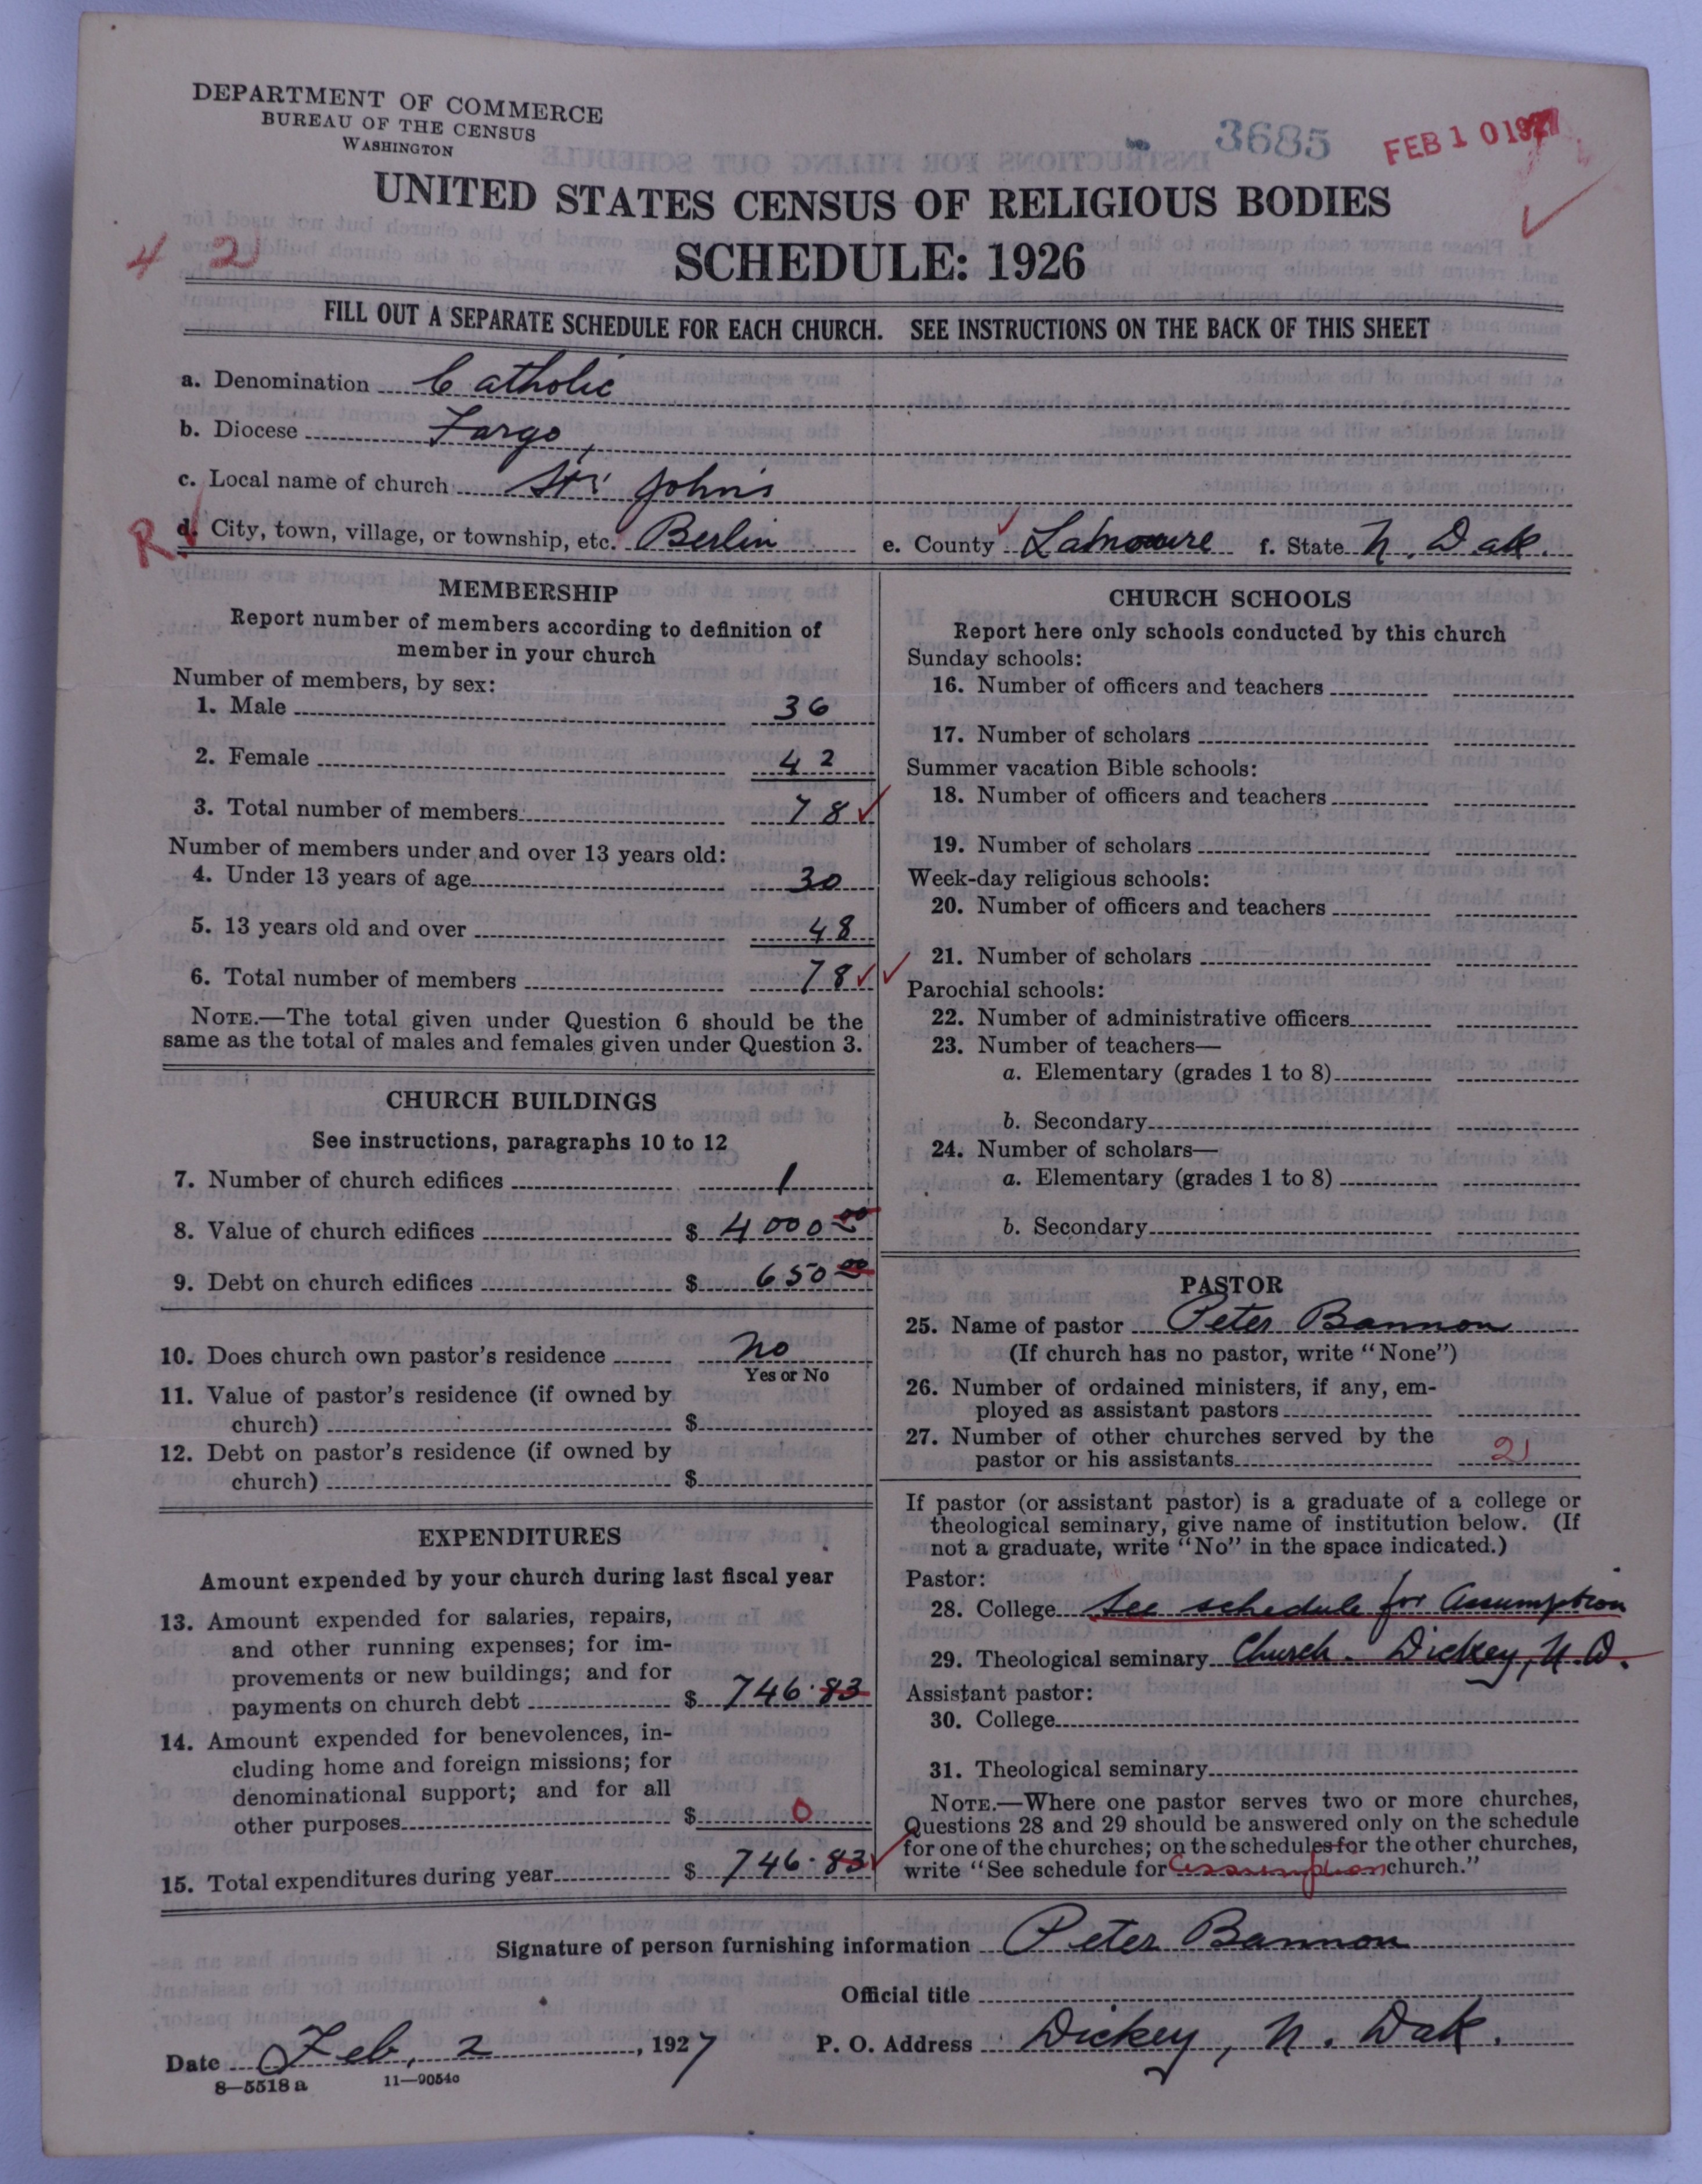 DEPARTMENT OF COMMERCE
BUREAU OF THE CENSUS
WASHINGTON
3685
FEB 10 1927
UNITED STATES CENSUS OF RELIGIOUS BODIES
SCHEDULE: 1926
4 2
FILL OUT A SEPARATE SCHEDULE FOR EACH CHURCH. SEE INSTRUCTIONS ON THE BACK OF THIS SHEET
a. Denomination Catholic
b. Diocese Fargo,
c. Local name of church St. John's
R
d. City, town, village, or township, etc. Berlin e. County Lamoure f. State N. Dak.
MEMBERSHIP
Report number of members according to definition of
member in your church
Number of members, by sex:
1. Male 36
2. Female 42
3. Total number of members 78
Number of members under and over 13 years old:
4. Under 13 years of age 30
5. 13 years old and over 48
6. Total number of members 78
NOTE.—The total given under Question 6 should be the
same as the total of males and females given under Question 3.
CHURCH BUILDINGS
See instructions, paragraphs 10 to 12
7. Number of church edifices 1
8. Value of church edifices $ 4000 00
9. Debt on church edifices $ 650 00
10. Does church own pastor's residence No
Yes or No
11. Value of pastor's residence (if owned by
church) $
12. Debt on pastor's residence (if owned by
church) $
EXPENDITURES
Amount expended by your church during last fiscal year
13. Amount expended for salaries, repairs,
and other running expenses; for im-
provements or new buildings; and for
payments on church debt $ 746.83
14. Amount expended for benevolences, in-
cluding home and foreign missions; for
denominational support; and for all
other purposes $ 0
15. Total expenditures during year $ 746.83
CHURCH SCHOOLS
Report here only schools conducted by this church
Sunday schools:
16. Number of officers and teachers
17. Number of scholars
Summer vacation Bible schools:
18. Number of officers and teachers
19. Number of scholars
Week-day religious schools:
20. Number of officers and teachers
21. Number of scholars
Parochial schools:
22. Number of administrative officers
23. Number of teachers—
a. Elementary (grades 1 to 8)
b. Secondary
24. Number of scholars—
a. Elementary (grades 1 to 8)
b. Secondary
PASTOR
25. Name of pastor Peter Bannon
(If church has no pastor, write "None")
26. Number of ordained ministers, if any, em-
ployed as assistant pastors
27. Number of other churches served by the
pastor or his assistants 2
If pastor (or assistant pastor) is a graduate of a college or
theological seminary, give name of institution below. (If
not a graduate, write "No" in the space indicated.)
Pastor:
28. College See schedule for Assumption
29. Theological seminary Church - Dickey, N.D.
Assistant pastor:
30. College
31. Theological seminary
NOTE.—Where one pastor serves two or more churches,
Questions 28 and 29 should be answered only on the schedule
for one of the churches; on the schedules for the other churches,
write "See schedule for Assumption church."
Signature of person furnishing information Peter Bannon
Official title
Date Feb. 2, 1927 P. O. Address Dickey, N. Dak.
8—5518 a 11—9054c